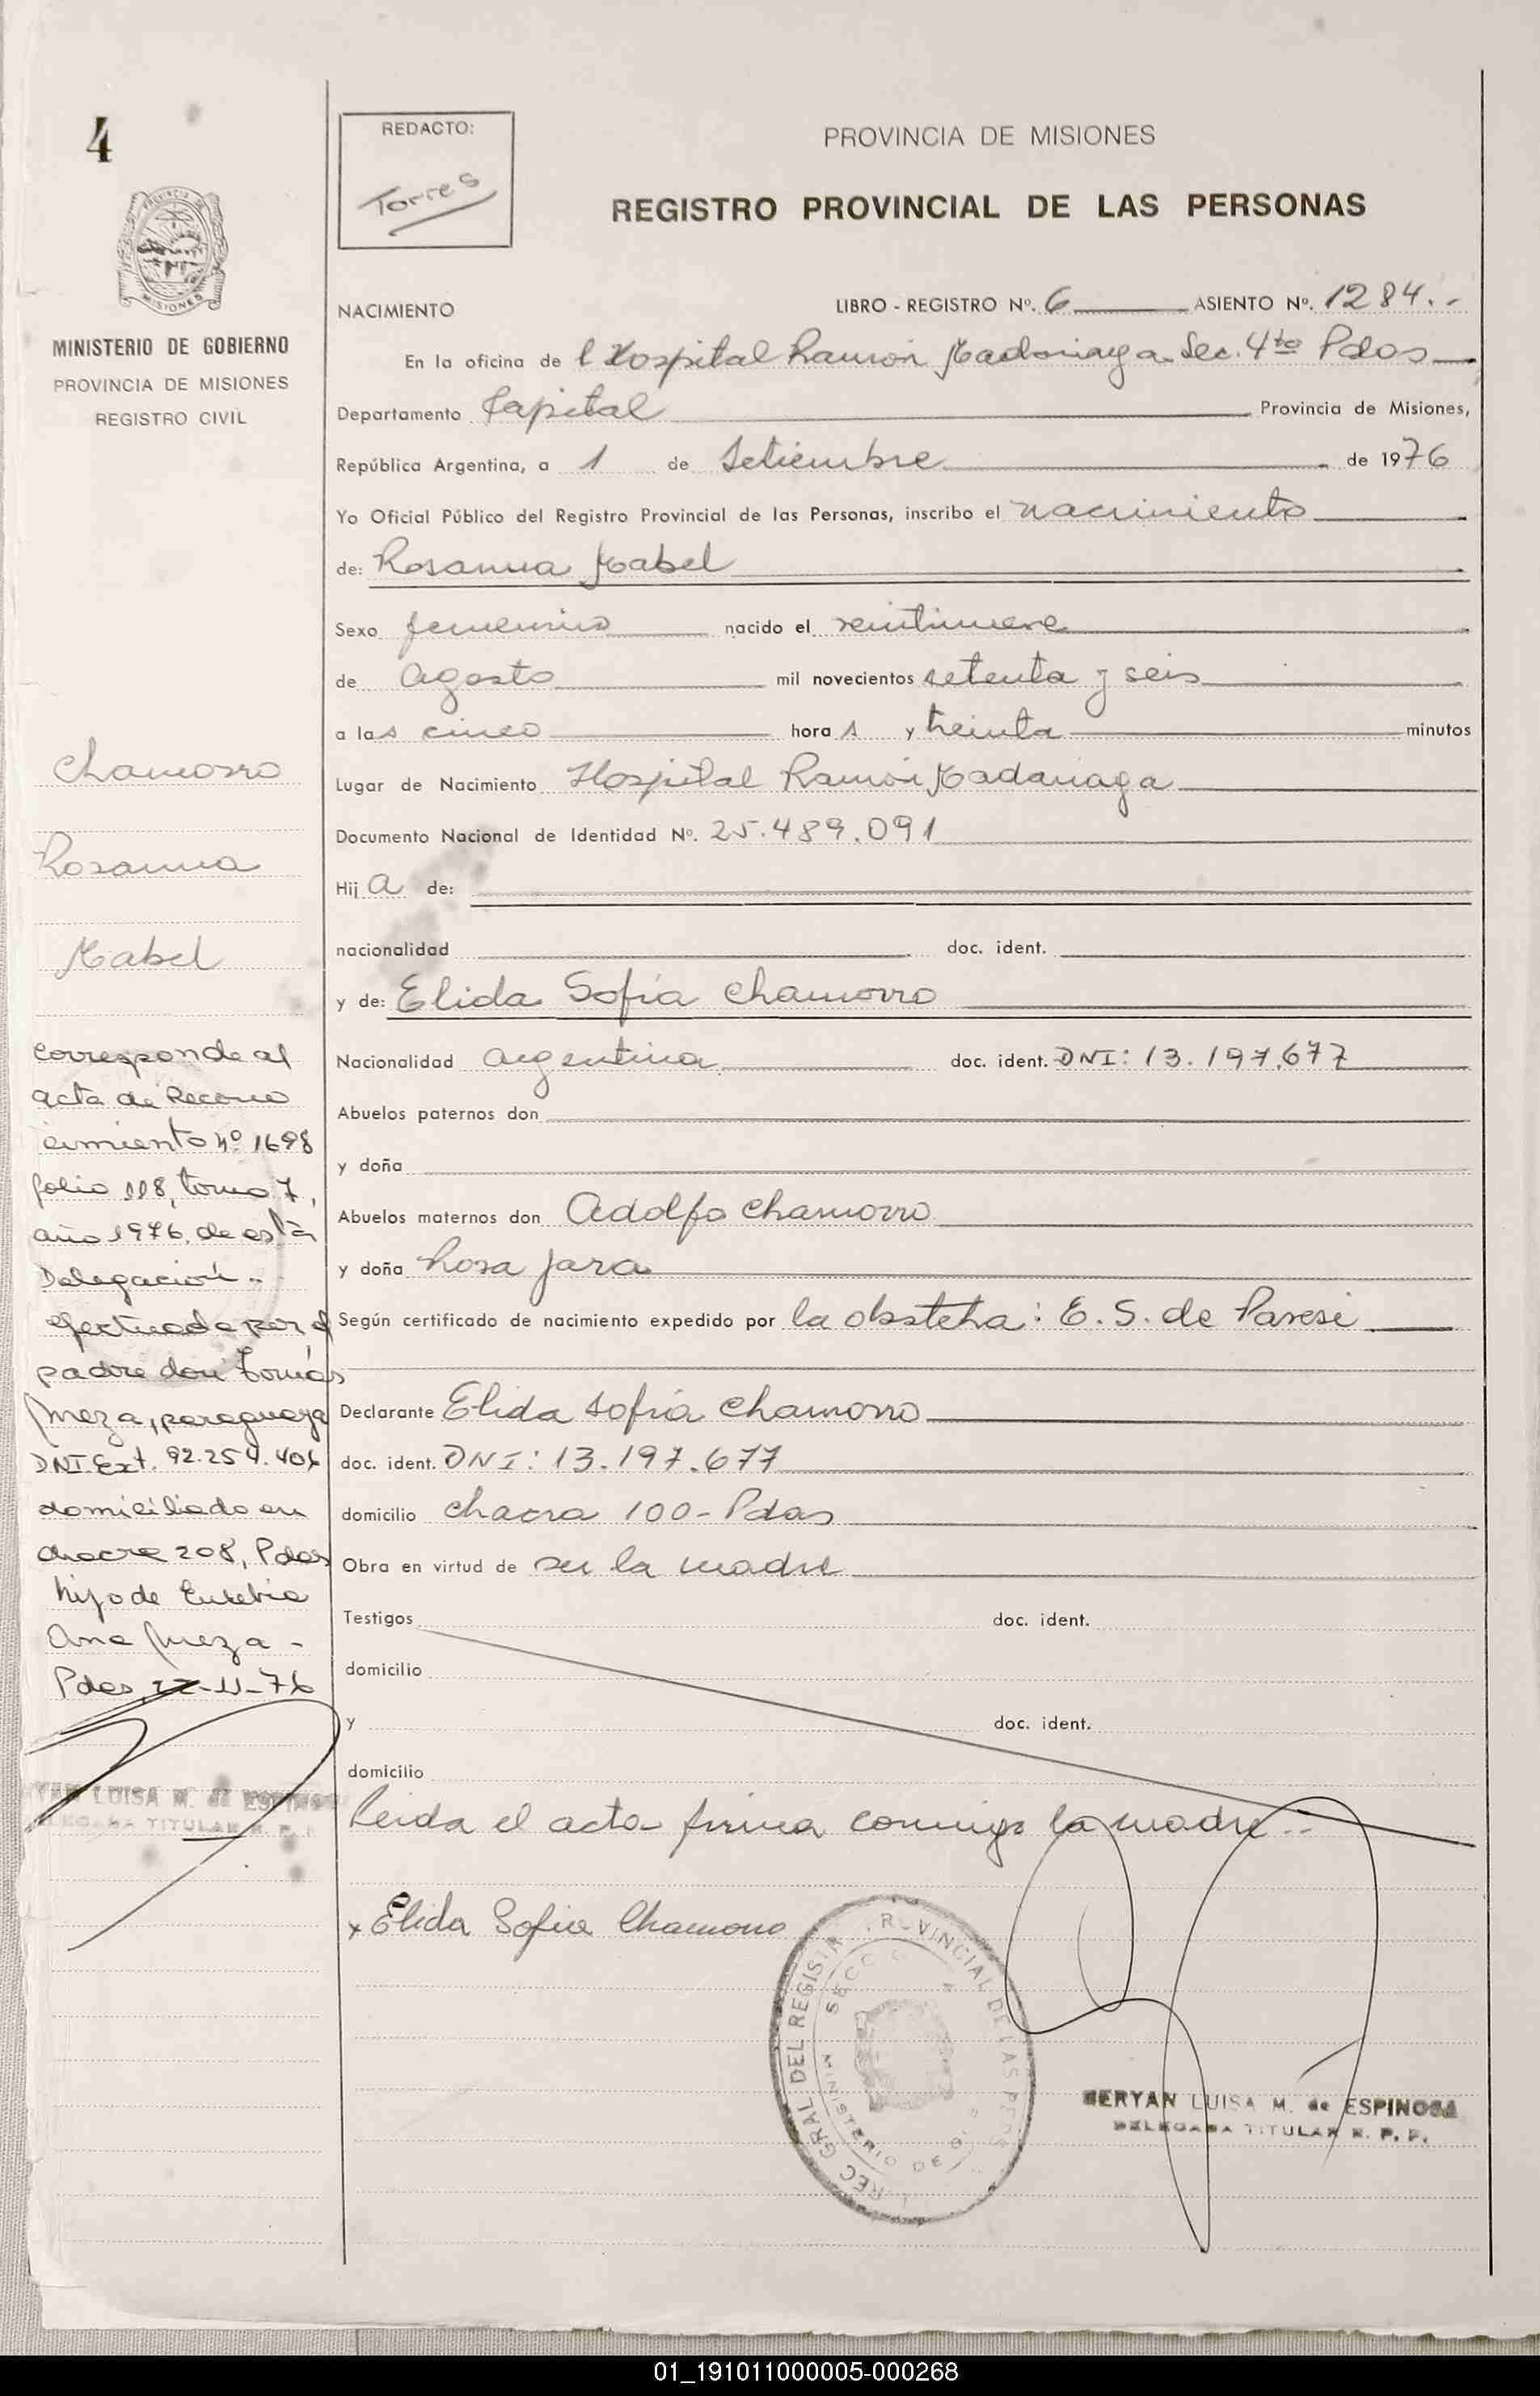 4
MISIONES
MINISTERIO DE GOBIERNO
PROVINCIA DE MISIONES
REGISTRO CIVIL
Chamorro
Rosanna
Mabel
corresponde al
acta de Recono
cimiento Nº 1698
folio 118, tomo 7,
año 1976, de esta
Delegación.-
efectuada por el
padre don Tomás
Meza, paraguayo
DNI.Ext. 92.254.406
domiciliado en
chacra 208, Pdas
hijo de Eusebia
Ana Meza -
Pdas -11-76
LUISA M. de ESPINOSA
TITULAR R. P. P.
REDACTO:
Torres
PROVINCIA DE MISIONES
REGISTRO PROVINCIAL DE LAS PERSONAS
NACIMIENTO LIBRO - REGISTRO Nº. 6 ASIENTO Nº. 1284.-
En la oficina de l Hospital Ramón Madariaga Sec. 4ta Pdas
Departamento Capital Provincia de Misiones,
República Argentina, a 1 de Setiembre de 1976
Yo Oficial Público del Registro Provincial de las Personas, inscribo el nacimiento
de: Rosanna Mabel
Sexo femenino nacido el veintinueve
de agosto mil novecientos setenta y seis
a las cinco horas y treinta minutos
Lugar de Nacimiento Hospital Ramón Madariaga
Documento Nacional de Identidad Nº. 25.489.091
Hij a de:
nacionalidad doc. ident.
y de: Elida Sofía Chamorro
Nacionalidad argentina doc. ident. DNI: 13.197.677
Abuelos paternos don
y doña
Abuelos maternos don Adolfo Chamorro
y doña Rosa Jara
Según certificado de nacimiento expedido por la obstetra: E. S. de Paresi
Declarante Elida Sofía Chamorro
doc. ident. DNI: 13.197.677
domicilio chacra 100 - Pdas
Obra en virtud de ser la madre
Testigos doc. ident.
domicilio
y doc. ident.
domicilio
Leida el acta firma conmigo la madre.-
x Elida Sofia Chamorro
MERYAN LUISA M. de ESPINOSA
DELEGADA TITULAR R. P. P.
01_191011000005-000268